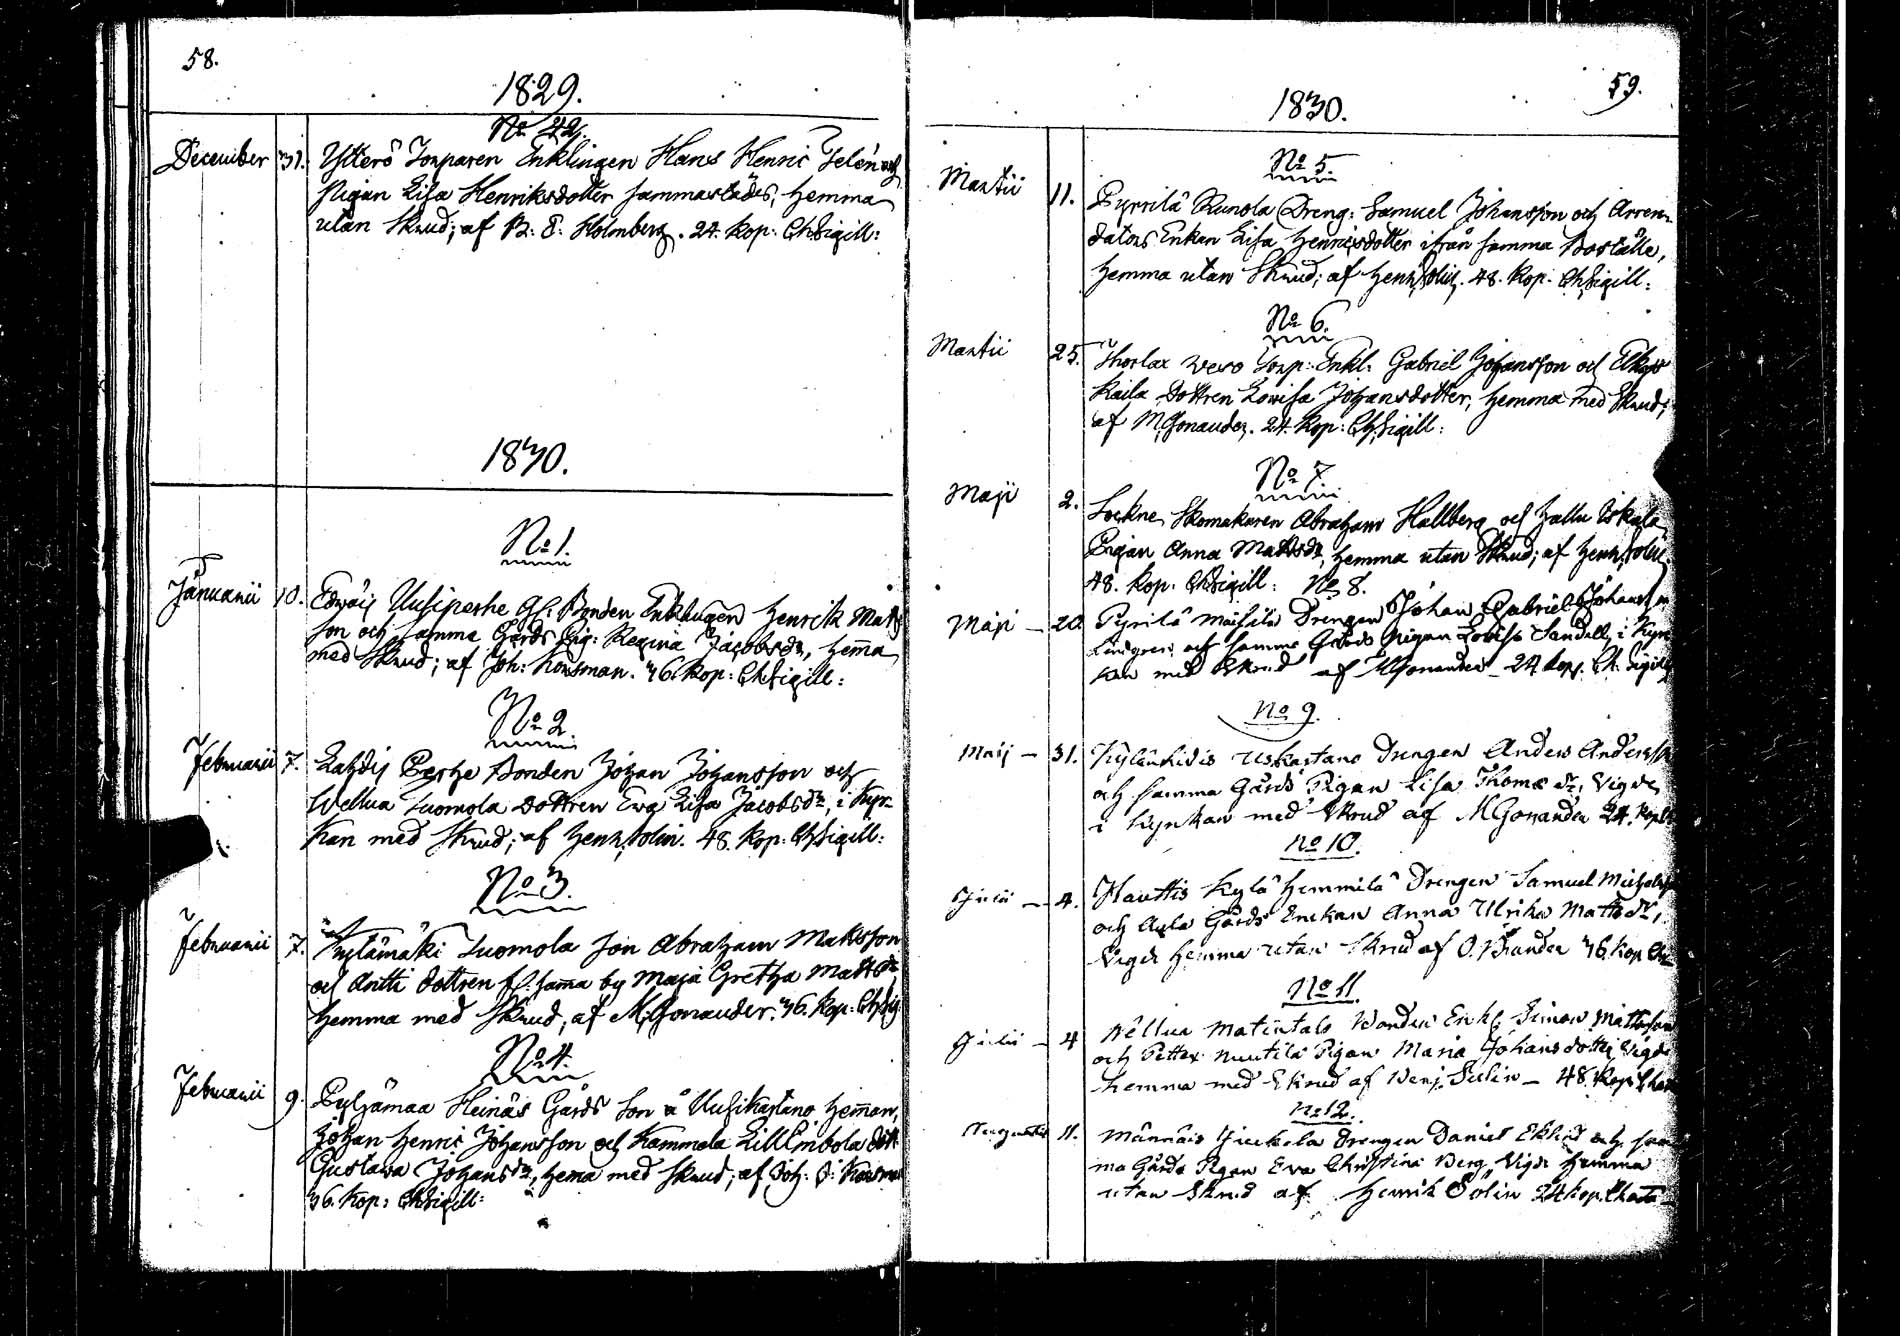 58.
1829.
No 42.
December 31. Ytterö Torparen Enklingen Hans Henric Telén och
Pigan Lisa Henriksdotter sammastädes, hemma
utan Skrud; af B: E: Holmberg. 24. kop: Ch:Sigill:
1830.
No 1.
Januarii 10. Uusiperhe Gl: Bonden Enklingen Henrik Mats
son och samma Gårds Pig: Regina Jacobsdr, hema
med Skrud; af Joh: Konsman. 36. kop: Ch:Sigill:
No 2.
Februarii 7. Lahdis Perhe Bonden Johan Johansson och
Wellua Tuomola dottren Eva Lisa Jacobsdr i Kyr-
kan med Skrud; af Henr: Solin. 48. kop: Ch:Sigill:
No 3.
Februarii 7. Tuomola son Abraham Matsson
och Antti dottren fr. sama by Maja Gretha Mattsdr
hemma med Skrud, af M: Gonander. 36. kop: Ch:Sig
No 4.
Februarii 9. Pyhämaa Heinäs Gårds son å Uusikartano heman,
Johan Henric Johansson och Kammela Lill Embola dott
Gustava Johansdr, hema med Skrud; af Joh: O:
36. kop: Ch:Sigill:
59.
1830.
No 5
Martii 11. Pyrrilä Runola Dreng: Samuel Johansson och Arren-
dators Enkan Lisa Henricsdotter ifrån samma Boställe,
hemma utan Skrud; af Henr: Solin. 48. kop. Ch:Sigill:
No 6.
Martii 25. Thorlax Torp: Enkl: Gabriel Johansson och
Kaila Dottren Lovisa Johansdotter, hemma med Skrud;
af M: Gonander. 24. kop: Ch:Sigill:
No 7
Maji 2. Lockne Skomakaren Abraham Hallberg och Hallu Iskala
Pigan Anna Mattsdr, hemma utan Skrud; af Henr: Solin.
48. kop: Ch:Sigill: No 8.
Maji - 20. Pyrilä Drengen Johan Gabriel Johansson
Lindgren och samma Gårds Pigan Lovisa Sandell, i Kyr
kan med Skrud af M Gonander - 24 kop: Ch. Sigill
No 9.
Maij - 31. Uskartano Drengen Anders Andersson
och samma Gårds Pigan Lisa Thomædr, Vigde
i Kyrkan med Skrud af M Gonander 24. kop
No 10.
Julii - 4. Hauttis Kylä Hemmilä Drengen Samuel Michelsson
och Ayla Gårds Enckan Anna Ulrika Mattsdr,
Vigde hemma utan Skrud af O. Brander 36 kop Ch
No 11.
Julii - 4 Wellua Matintalo Bonden Enkl. Simon Mattsson
och Petter Nuutila Pigan Maria Johansdotter Vigde
hemma med Skrud af Benj. Sulin - 48. kop Cha
No 12.
Augusti 11. Männäis Juckola Drengen Daniel Ekhed och sam
ma Gårds Pigan Eva Christina Berg Vigde hemma
utan Skrud af Henrik Solin 24 kop. Charta